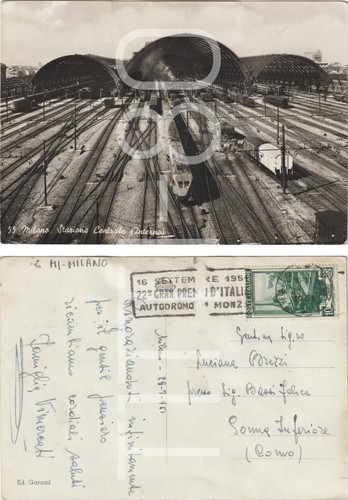 55 Milano Stazione Centrale (Interno)
MI-MILANO
16 SETTEMBRE 1951
22° GRAN PREMIO D'ITALIA
AUTODROMO DI MONZ
Ringraziandoti infinitamente
per il gentil pensiero
ricambiamo cordiali saluti
Famiglia Vimercati
Milano - 29-9-951
Gent.ma Sig.na
Luciana Brizzi
presso Sig. Bassi Felice
Somma Inferiore
(Como)
Ed. Garami